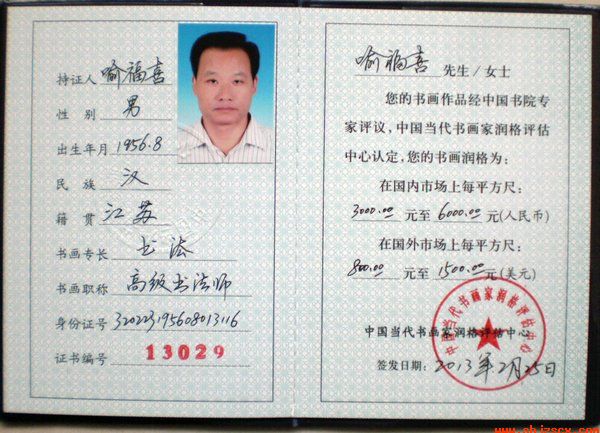 持证人 喻福喜
性别 男
出生年月 1956.8
民族 汉
籍贯 江苏
书画专长 书法
书画职称 高级书法师
身份证号 320223195608013116
证书编号 13029
喻福喜 先生/女士
您的书画作品经中国书院专
家评议,中国当代书画家润格评估
中心认定,您的书画润格为:
在国内市场上每平方尺:
3000.00 元至 6000.00 元(人民币)
在国外市场上每平方尺:
800.00 元至 1500.00 元(美元)
中国当代书画家润格评估中心
中国当代书画家润格评估中心
签发日期: 2013年2月25日